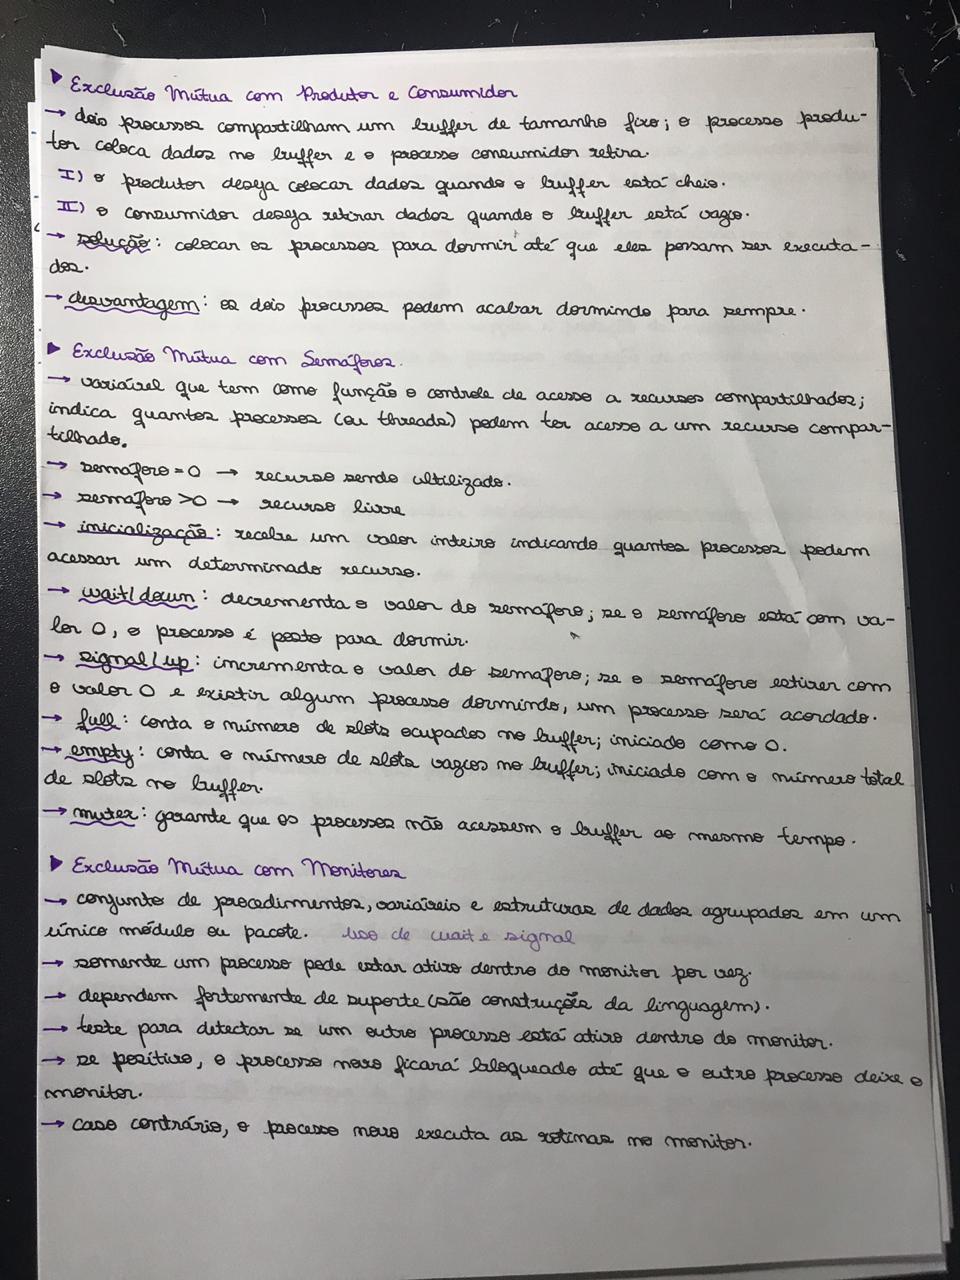 ▶ Exclusão Mútua com Produtor e Consumidor
→ dois processos compartilham um buffer de tamanho fixo; o processo produ-
tor coloca dados no buffer e o processo consumidor retira.
I) o produtor deseja colocar dados quando o buffer está cheio.
II) o consumidor deseja retirar dados quando o buffer está vazio.
→ solução: colocar os processos para dormir até que eles possam ser executa-
dos.
→ desvantagem: os dois processos podem acabar dormindo para sempre.
▶ Exclusão Mútua com Semáforos.
→ variável que tem como função o controle de acesso a recursos compartilhados;
indica quantos processos (ou threads) podem ter acesso a um recurso compar-
tilhado.
→ semáforo = 0 → recurso sendo ultilizado.
→ semáforo >0 → recurso livre
→ inicialização: recebe um valor inteiro indicando quantos processos podem
acessar um determinado recurso.
→ wait/down: decrementa o valor do semáforo; se o semáforo está com va-
lor 0, o processo é posto para dormir.
→ signal/up: incrementa o valor do semáforo; se o semáforo estiver com
o valor 0 e existir algum processo dormindo, um processo será acordado.
→ full: conta o número de slots ocupados no buffer; iniciado como 0.
→ empty: conta o número de slots vagos no buffer; iniciado com o número total
de slots no buffer.
→ mutex: garante que os processos não acessem o buffer ao mesmo tempo.
▶ Exclusão Mútua com Monitores
→ conjunto de procedimentos, variáveis e estruturas de dados agrupados em um
único módulo ou pacote. Uso de wait e signal
→ somente um processo pode estar ativo dentro do monitor por vez.
→ dependem fortemente de suporte (são construções da linguagem).
→ teste para detectar se um outro processo está ativo dentro do monitor.
→ se positivo, o processo novo ficará bloqueado até que o outro processo deixe o
monitor.
→ caso contrário, o processo novo executa as rotinas no monitor.